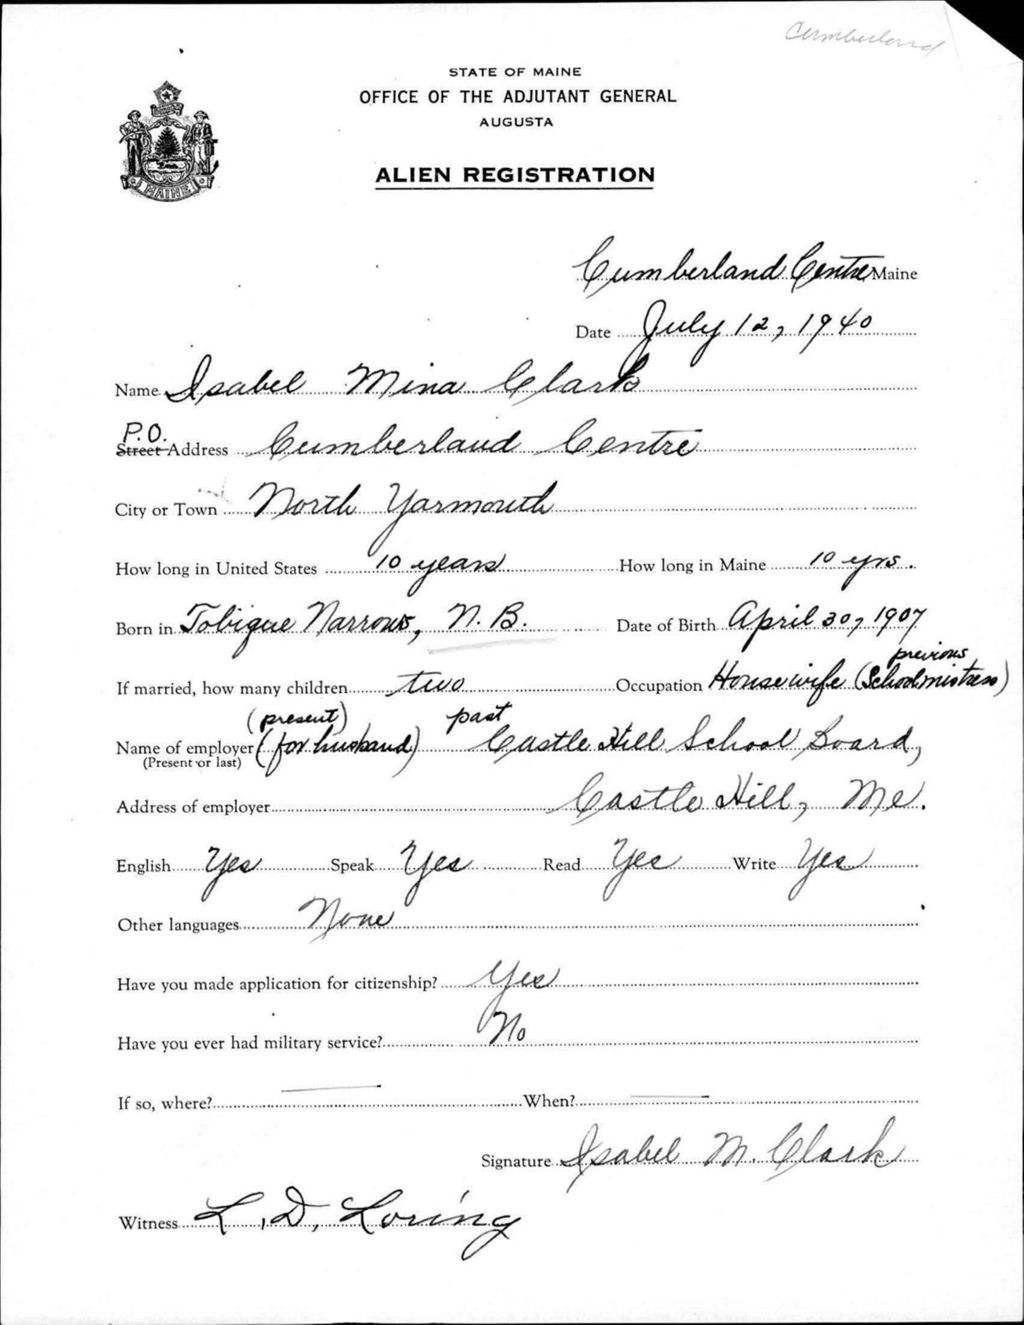 Cumberland
STATE OF MAINE
OFFICE OF THE ADJUTANT GENERAL
AUGUSTA
ALIEN REGISTRATION
MAINE
Cumberland Centre Maine
Date July 12, 1940
Name Isabel Mina Clark
P.O.
Street Address Cumberland Centre
City or Town North Yarmouth
How long in United States 10 years How long in Maine 10 yrs.
Born in Tobique Narrows, N. B. Date of Birth April 30, 1907
previous
If married, how many children two Occupation Housewife (Schoolmistress)
(present) past
Name of employer (for husband) Castle Hill School Board,
(Present or last)
Address of employer Castle Hill, Me.
English Yes Speak Yes Read Yes Write Yes
Other languages None
Have you made application for citizenship? Yes
Have you ever had military service? No
If so, where? — When? —
Signature Isabel M. Clark
Witness L. D. Loring